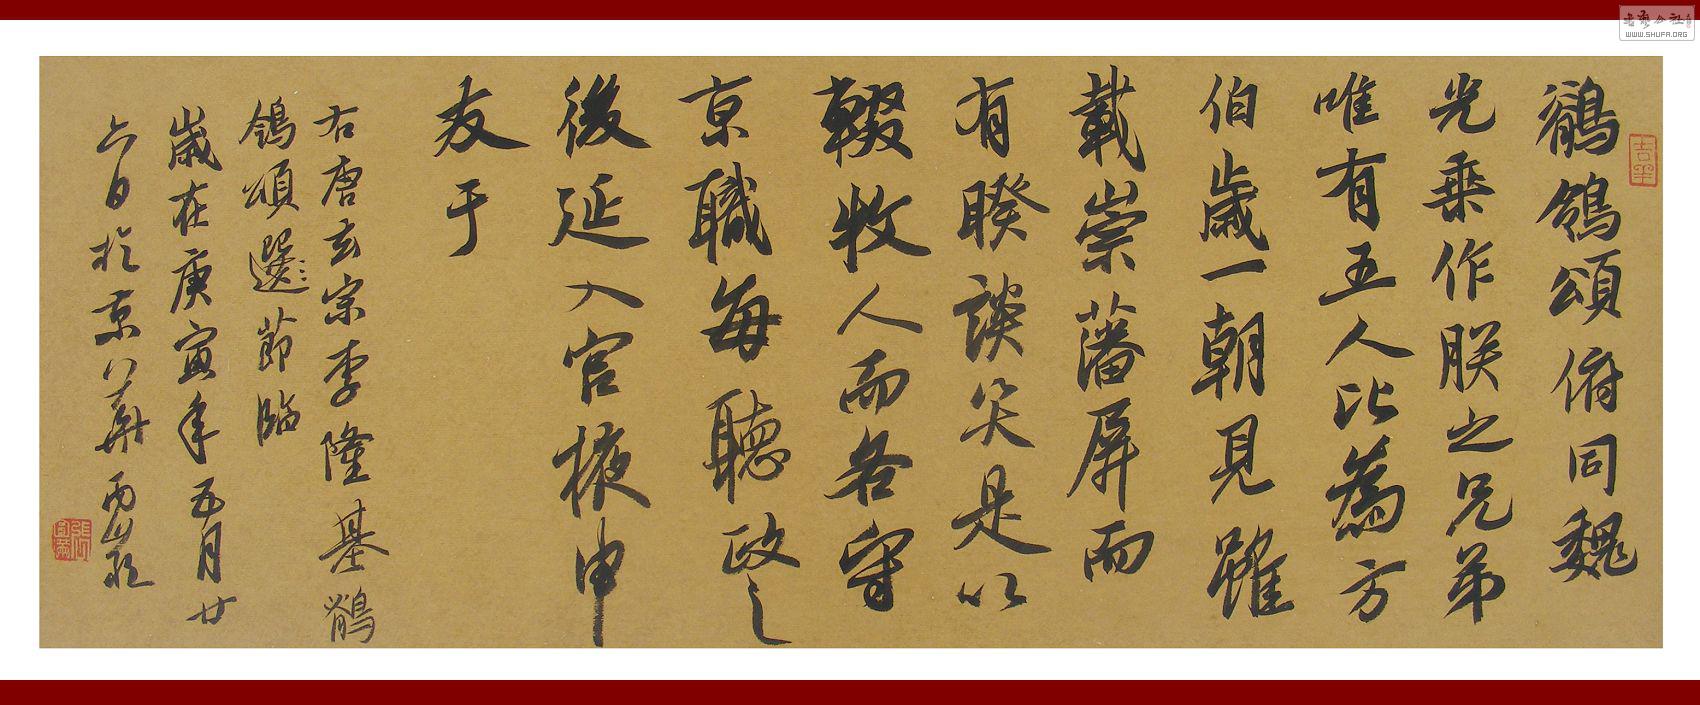 鶺鴒頌俯同魏
光乗作朕之兄弟
唯有五人比為方
伯歲一朝見雖
載崇藩屏而
有睽談笑是以
輟牧人而各守
京職每聽政之
後延入宫掖申
友于
右唐玄宗李隆基鶺
鴒頌選節臨
歲在庚寅年五月廿
六日於京華
吉羊
WWW.SHUFA.ORG